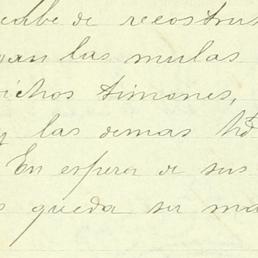 de recostru
van las mulas
dichos timones,
y las demas
En espera de sus
queda su ma